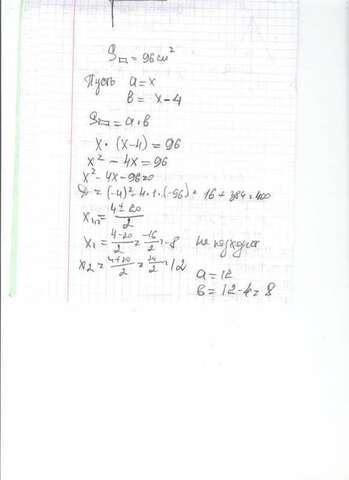 S▭ = 96 см²
Пусть a = x
в = x - 4
S▭ = a · в
x · (x - 4) = 96
x² - 4x = 96
x² - 4x - 96 = 0
D = (-4)² - 4 · 1 · (-96) = 16 + 384 = 400
x₁,₂ = (4 ± 20)/2
x₁ = (4-20)/2 = -16/2 = -8 не подходит
x₂ = (4+20)/2 = 24/2 = 12
a = 12
в = 12 - 4 = 8